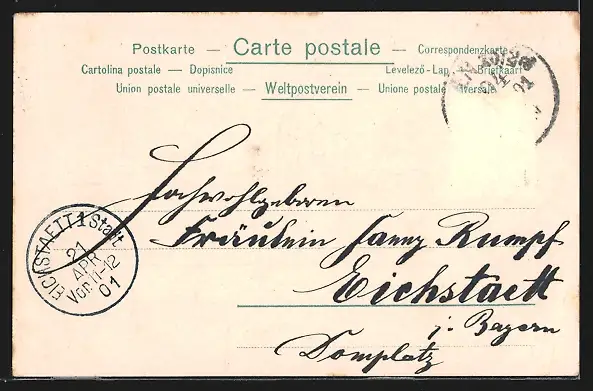 Postkarte — Carte postale — Correspondenzkarte
Cartolina postale — Dopisnice Levelező-Lap Briefkaart
Union postale universelle — Weltpostverein — Unione postale versale
01
Hochwohlgeboren
Fräulein Fanny Rumpf
Eichstaett
i. Bayern
Domplatz
EICHSTAETT 1 Stadt
21
APR
Vor. 11-12
01